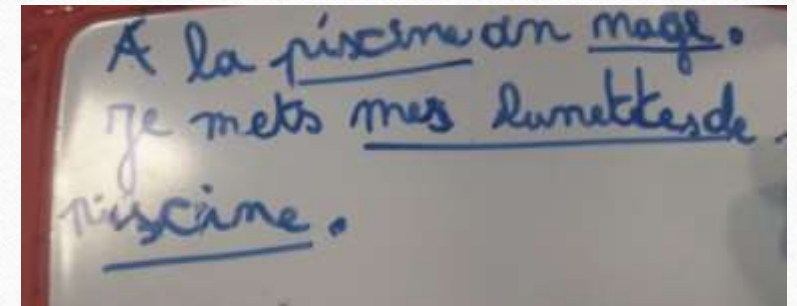 A la piscine on nage.
Je mets mes lunettes de
piscine.